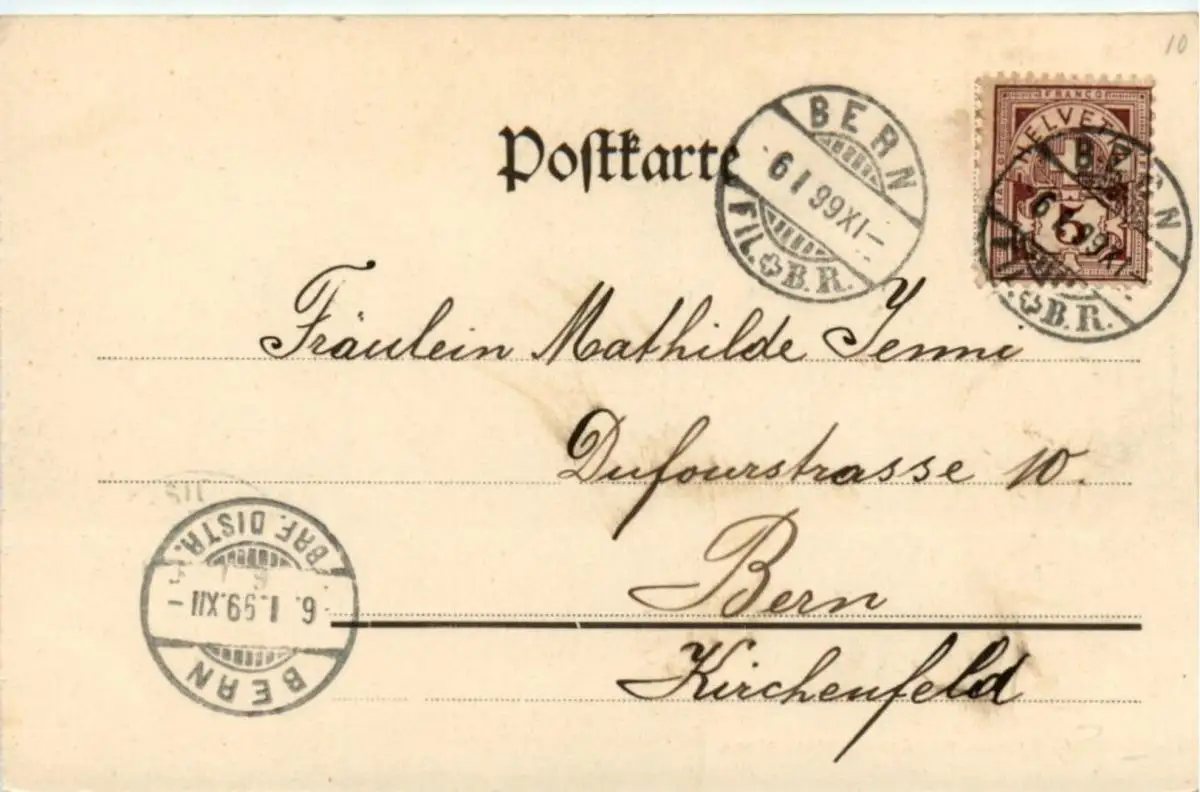 10
Postkarte
BERN
6 I 99 XI–
FIL. B.R.
FRANCO
HELVETIA
5
BERN
6 I 99 XI
FIL. B.R.
Fräulein Mathilde Jenni
Dufourstrasse 10.
Bern
Kirchenfeld
BRF. DISTR.
6. I. 99. XII –
BERN